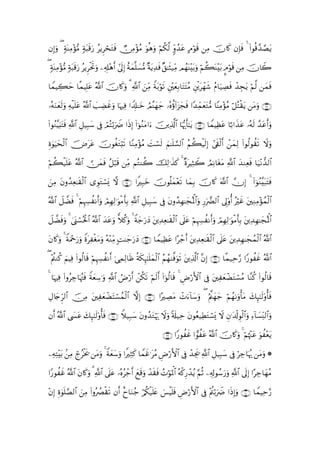 يَصَّدَّقُوا۟ ۚ فَإِن كَانَ مِن قَوْمٍ عَدُوٍّ لَّكُمْ وَهُوَ مُؤْمِنٌ فَتَحْرِيرُ رَقَبَةٍ مُّؤْمِنَةٍ ۖ وَإِن
كَانَ مِن قَوْمٍۭ بَيْنَكُمْ وَبَيْنَهُم مِّيثَٰقٌ فَدِيَةٌ مُّسَلَّمَةٌ إِلَىٰٓ أَهْلِهِۦ وَتَحْرِيرُ رَقَبَةٍ مُّؤْمِنَةٍ ۖ
فَمَن لَّمْ يَجِدْ فَصِيَامُ شَهْرَيْنِ مُتَتَابِعَيْنِ تَوْبَةً مِّنَ ٱللَّهِ ۗ وَكَانَ ٱللَّهُ عَلِيمًا حَكِيمًا
﴿٩٢﴾ وَمَن يَقْتُلْ مُؤْمِنًا مُّتَعَمِّدًا فَجَزَآؤُهُۥ جَهَنَّمُ خَٰلِدًا فِيهَا وَغَضِبَ ٱللَّهُ عَلَيْهِ وَلَعَنَهُۥ
وَأَعَدَّ لَهُۥ عَذَابًا عَظِيمًا ﴿٩٣﴾ يَٰٓأَيُّهَا ٱلَّذِينَ ءَامَنُوٓا۟ إِذَا ضَرَبْتُمْ فِى سَبِيلِ ٱللَّهِ فَتَبَيَّنُوا۟
وَلَا تَقُولُوا۟ لِمَنْ أَلْقَىٰٓ إِلَيْكُمُ ٱلسَّلَٰمَ لَسْتَ مُؤْمِنًا تَبْتَغُونَ عَرَضَ ٱلْحَيَوٰةِ
ٱلدُّنْيَا فَعِندَ ٱللَّهِ مَغَانِمُ كَثِيرَةٌ ۚ كَذَٰلِكَ كُنتُم مِّن قَبْلُ فَمَنَّ ٱللَّهُ عَلَيْكُمْ
فَتَبَيَّنُوٓا۟ ۚ إِنَّ ٱللَّهَ كَانَ بِمَا تَعْمَلُونَ خَبِيرًا ﴿٩٤﴾ لَّا يَسْتَوِى ٱلْقَٰعِدُونَ مِنَ
ٱلْمُؤْمِنِينَ غَيْرُ أُو۟لِى ٱلضَّرَرِ وَٱلْمُجَٰهِدُونَ فِى سَبِيلِ ٱللَّهِ بِأَمْوَٰلِهِمْ وَأَنفُسِهِمْ ۚ فَضَّلَ ٱللَّهُ
ٱلْمُجَٰهِدِينَ بِأَمْوَٰلِهِمْ وَأَنفُسِهِمْ عَلَى ٱلْقَٰعِدِينَ دَرَجَةً ۚ وَكُلًّا وَعَدَ ٱللَّهُ ٱلْحُسْنَىٰ ۚ وَفَضَّلَ
ٱللَّهُ ٱلْمُجَٰهِدِينَ عَلَى ٱلْقَٰعِدِينَ أَجْرًا عَظِيمًا ﴿٩٥﴾ دَرَجَٰتٍ مِّنْهُ وَمَغْفِرَةً وَرَحْمَةً ۚ وَكَانَ
ٱللَّهُ غَفُورًا رَّحِيمًا ﴿٩٦﴾ إِنَّ ٱلَّذِينَ تَوَفَّىٰهُمُ ٱلْمَلَٰٓئِكَةُ ظَالِمِىٓ أَنفُسِهِمْ قَالُوا۟ فِيمَ كُنتُمْ ۖ
قَالُوا۟ كُنَّا مُسْتَضْعَفِينَ فِى ٱلْأَرْضِ ۚ قَالُوٓا۟ أَلَمْ تَكُنْ أَرْضُ ٱللَّهِ وَٰسِعَةً فَتُهَاجِرُوا۟ فِيهَا ۚ
فَأُو۟لَٰٓئِكَ مَأْوَىٰهُمْ جَهَنَّمُ ۖ وَسَآءَتْ مَصِيرًا ﴿٩٧﴾ إِلَّا ٱلْمُسْتَضْعَفِينَ مِنَ ٱلرِّجَالِ
وَٱلنِّسَآءِ وَٱلْوِلْدَٰنِ لَا يَسْتَطِيعُونَ حِيلَةً وَلَا يَهْتَدُونَ سَبِيلًا ﴿٩٨﴾ فَأُو۟لَٰٓئِكَ عَسَى ٱللَّهُ أَن
يَعْفُوَ عَنْهُمْ ۚ وَكَانَ ٱللَّهُ عَفُوًّا غَفُورًا ﴿٩٩﴾
۞ وَمَن يُهَاجِرْ فِى سَبِيلِ ٱللَّهِ يَجِدْ فِى ٱلْأَرْضِ مُرَٰغَمًا كَثِيرًا وَسَعَةً ۚ وَمَن يَخْرُجْ مِنۢ بَيْتِهِۦ
مُهَاجِرًا إِلَى ٱللَّهِ وَرَسُولِهِۦ ثُمَّ يُدْرِكْهُ ٱلْمَوْتُ فَقَدْ وَقَعَ أَجْرُهُۥ عَلَى ٱللَّهِ ۗ وَكَانَ ٱللَّهُ غَفُورًا
رَّحِيمًا ﴿١٠٠﴾ وَإِذَا ضَرَبْتُمْ فِى ٱلْأَرْضِ فَلَيْسَ عَلَيْكُمْ جُنَاحٌ أَن تَقْصُرُوا۟ مِنَ ٱلصَّلَوٰةِ إِنْ